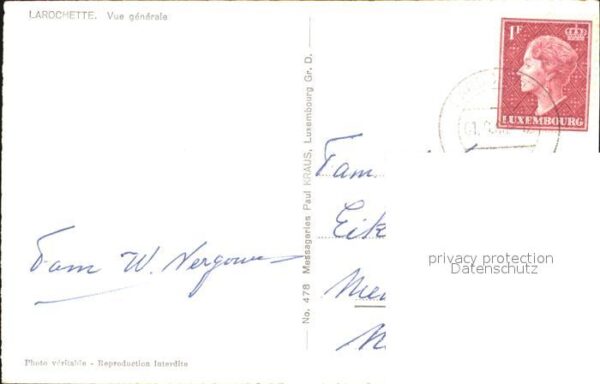 LAROCHETTE. Vue générale
1F
LUXEMBOURG
No. 478 Messageries Paul KRAUS, Luxembourg Gr. D.
Fam
Eik
privacy protection
Datenschutz
Fam W. Vergouw
Photo véritable - Reproduction Interdite